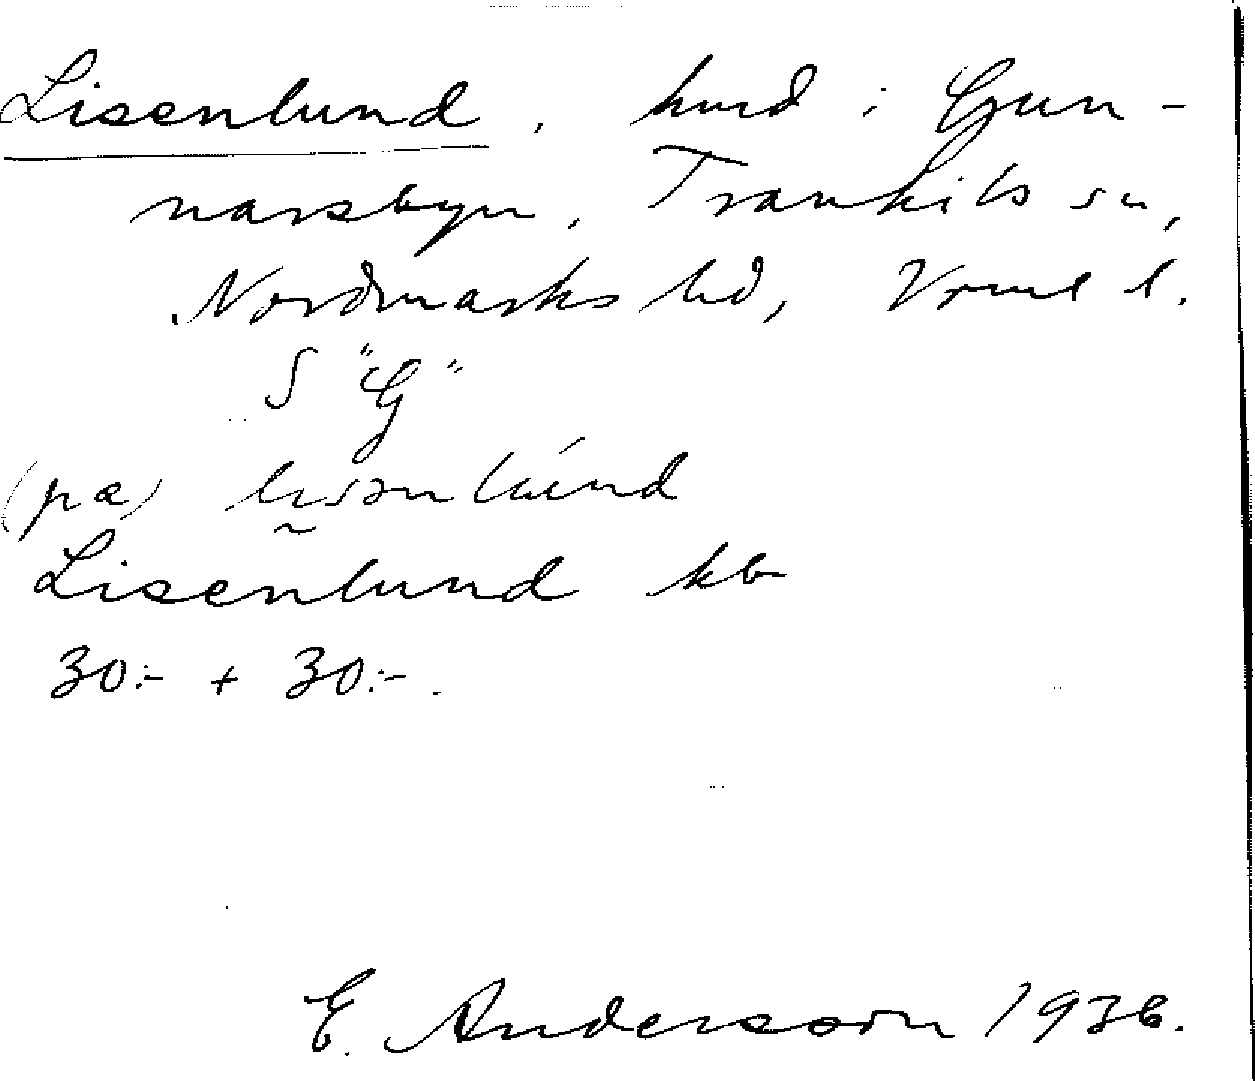 Lisenlund, hmd i Gun-
narsbyn, Trankils sn,
Nordmarks hd, Vrml l.
S "G"
(pæ)
Lisenlund kb
30:- + 30:-.
E. Andersson 1936.